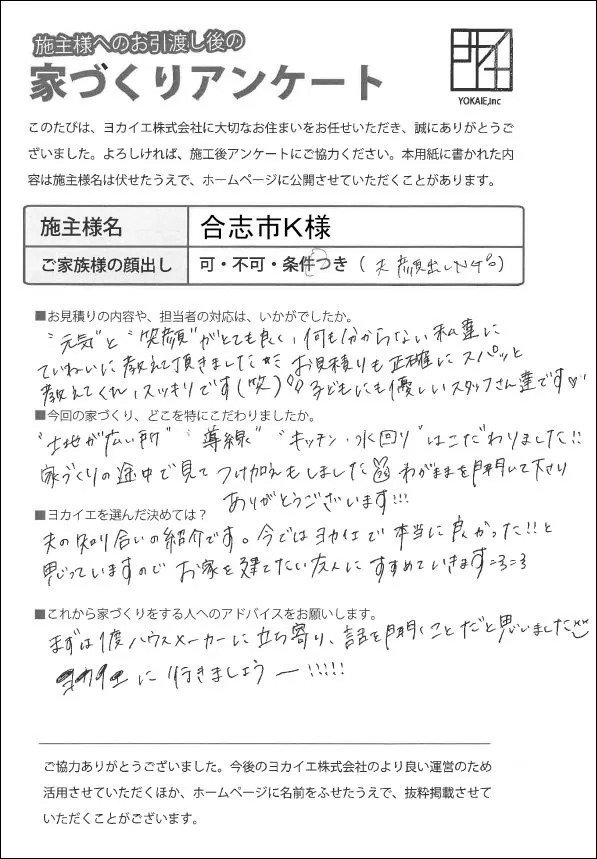 施主様へのお引渡し後の
家づくりアンケート
YOKAIE,Inc
このたびは、ヨカイエ株式会社に大切なお住まいをお任せいただき、誠にありがとうご
ざいました。よろしければ、施工後アンケートにご協力ください。本用紙に書かれた内
容は施主様名は伏せたうえで、ホームページに公開させていただくことがあります。
施主様名 合志市K様
ご家族様の顔出し 可・不可・条件つき ( 夫 顔出しNG。)
■お見積りの内容や、担当者の対応は、いかがでしたか。
"元気"と"笑顔"がとても良く、何も分からない私達に
ていねいに教えて頂きました お見積りも正確にスパッと
教えてくれ、スッキリです(笑) 子どもにも優しいスタッフさん達です♡
■今回の家づくり、どこを特にこだわりましたか。
"土地が広い所" "導線" "キッチン・水回り"はこだわりました!!
家づくりの途中で見てつけ加えもしました わがままを聞いて下さり
ありがとうございます!!!
■ヨカイエを選んだ決めては?
夫の知り合いの紹介です。今ではヨカイエで本当に良かった!!と
思っていますので お家を建てたい友人にすすめていきます=3=3
■これから家づくりをする人へのアドバイスをお願いします。
まずは1度ハウスメーカーに立ち寄り、話を聞くことだと思いました
ヨカイエに行きましょうー!!!!!
ご協力ありがとうございました。今後のヨカイエ株式会社のより良い運営のため
活用させていただくほか、ホームページに名前をふせたうえで、抜粋掲載させて
いただくことがございます。